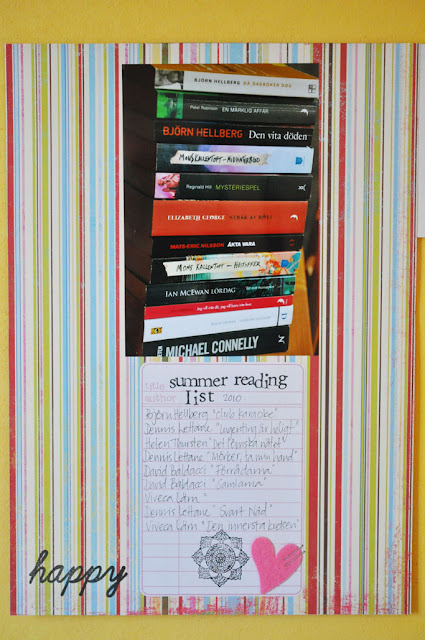 BJÖRN HELLBERG DÅ DAGBOKEN DOG
Peter Robinson EN MÄRKLIG AFFÄR
BJÖRN HELLBERG Den vita döden
MONS KALLENTOFT - MIDVINTERBLOD
Reginald Hill MYSTERIESPEL
ELIZABETH GEORGE
MATS-ERIC NILSSON ÄKTA VARA
MONS KALLENTOFT - HÖSTOFFER
IAN McEWAN LÖRDAG
MICHAEL CONNELLY
title summer reading
author list 2010
Björn Hellberg "Club Karaoke"
Dennis Lehane "Ingenting är heligt"
Helen Thursten "Det lömska nätet"
Dennis Lehane "Mörker, ta min hand"
David Baldacci "Förrädarna"
David Baldacci "Samlarna"
Viveca Lärn "
Dennis Lehane "Svart Nåd"
Viveca Lärn "Den innersta kretsen"
happy